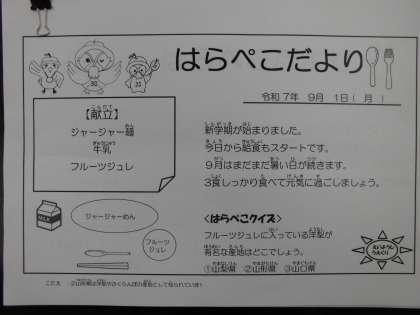 はらぺこだより
令和7年 9月 1日(月)
【献立】
ジャージャー麺
牛乳
フルーツジュレ
新学期が始まりました。
今日から給食もスタートです。
9月はまだまだ暑い日が続きます。
3食しっかり食べて元気に過ごしましょう。
ジャージャーめん
フルーツ
ジュレ
<はらぺこクイズ>
フルーツジュレに入っている洋梨が
有名な産地はどこでしょう。
①山梨県 ②山形県 ③山口県
こたえ :②山形県は洋梨やさくらんぼの産地として知られています